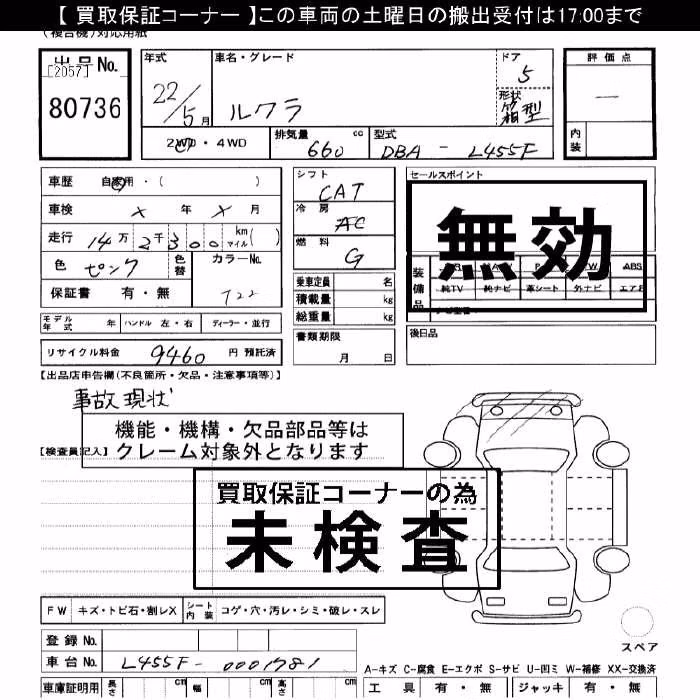 【 買取保証コーナー 】この車両の土曜日の搬出受付は17:00まで
(複合機)対応用紙
出品No.
[2057]
80736
年式
22/5月
車名・グレード
ルクラ
ドア
5
形状
箱型
評価点
—
内装
2WD・4WD
排気量
660 cc
型式
DBA - L455F
車歴 自家用・( )
車検 × 年 × 月
走行 14万2千300 km マイル ( )
色 ピンク
色替
カラーNo.
T22
保証書 有・無
シフト
CAT
冷房
AC
燃料
G
乗車定員 名
積載量 kg
総重量 kg
セールスポイント
無効
装備品
ABS
純TV 純ナビ 革シート 外ナビ エアB
モデル年式 年 ハンドル 左・右 ディーラー・並行
書類期限
月 日
後日品
リサイクル料金 9460 円 預託済
【出品店申告欄(不良箇所・欠品・注意事項等)】
事故現状
機能・機構・欠品部品等は
クレーム対象外となります
【検査員記入】
買取保証コーナーの為
未検査
FW キズ・トビ石・割レX シート内装 コゲ・穴・汚レ・シミ・破レ・スレ
スペア
登録No.
車台No. L455F-0001781
A-キズ C-腐食 E-エクボ S-サビ U-凹ミ W-補修 XX-交換済
車庫証明用 長さ cm 幅 cm 高さ cm
工具 有・無 ジャッキ 有・無